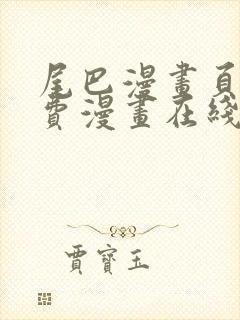 尾巴漫畫頁
費漫畫在綫
賈寶玉